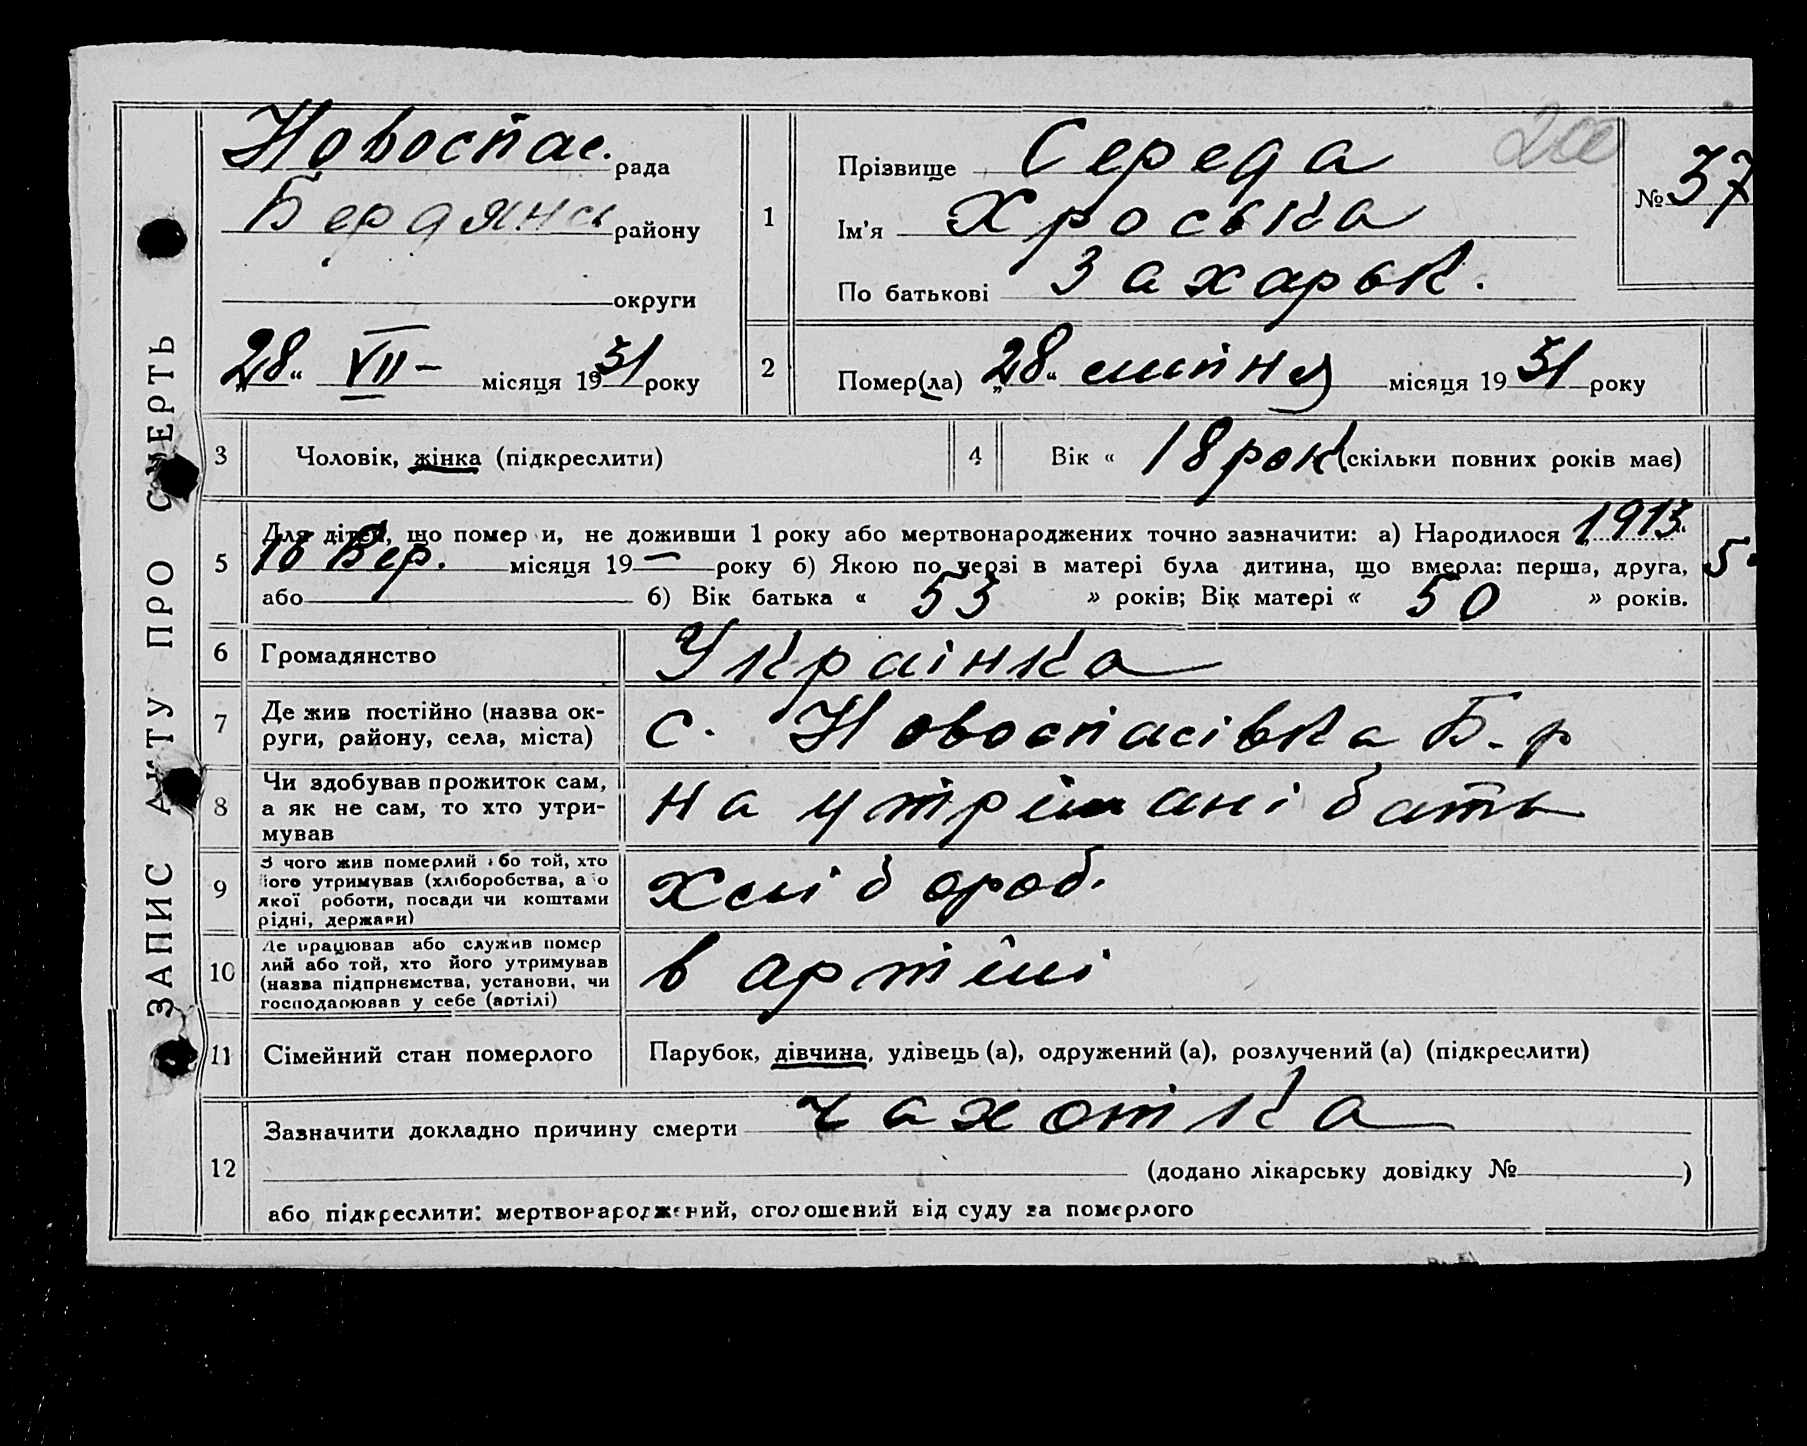 ЗАПИС АКТУ ПРО СМЕРТЬ
Новоспас. рада
Бердянсь району
округи
28 " VII – місяця 1931 року
1
Прізвище Середа
200
№ 37
Ім'я Хроська
По батькові Захарьк.
2
Помер(ла) „28" липня місяця 1931 року
3 Чоловік, жінка (підкреслити)
4 Вік « 18 рок (скільки повних років має)
5 Для дітей, що помер и, не доживши 1 року або мертвонароджених точно зазначити: а) Народилося „1913"
16 Вер. місяця 19 — року б) Якою по черзі в матері була дитина, що вмерла: перша, друга,
або б) Вік батька « 53 » років; Вік матері « 50 » років.
6 Громадянство Українка
7 Де жив постійно (назва ок-
руги, району, села, міста)
с. Новоспасівка Б-р
8 Чи здобував прожиток сам,
а як не сам, то хто утри-
мував
на утрімані бать
9 З чого жив померлий або той, хто
його утримував (хліборобства, або
якої роботи, посади чи коштами
рідні, держави)
Хлібороб.
10 Де працював або служив помер
лий або той, хто його утримував
(назва підприємства, установи, чи
господарював у себе (артілі)
в артілі
11 Сімейний стан померлого Парубок, дівчина, удівець (а), одружений (а), розлучений (а) (підкреслити)
12 Зазначити докладно причину смерти чахотка
(додано лікарську довідку № )
або підкреслити: мертвонароджений, оголошений від суду за померлого